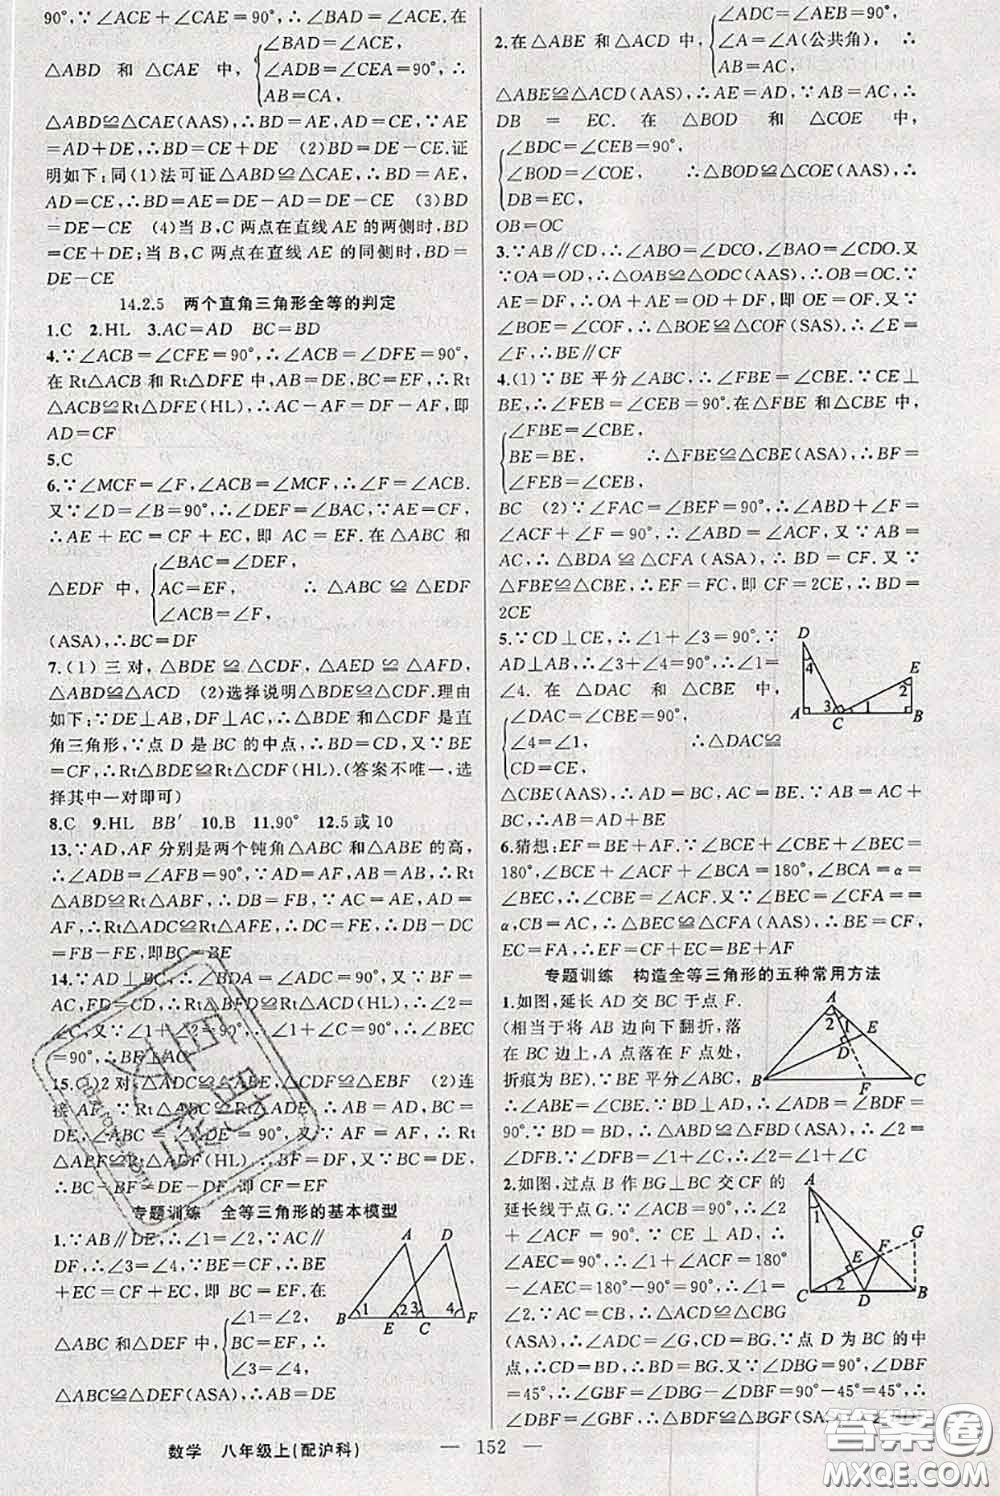 90°,∵∠ACE+∠CAE=90°,∴∠BAD=∠ACE.在
△ABD 和 △CAE 中,{∠BAD=∠ACE,
∠ADB=∠CEA=90°,∴
AB=CA,
△ABD≌△CAE(AAS),∴BD=AE,AD=CE,∵AE
=AD+DE,∴BD=CE+DE (2)BD=DE-CE.证
明如下:同(1)法可证△ABD≌△CAE,∴BD=AE,
AD=CE,∴BD=AE=DE-AD=DE-CE (3)BD
=DE-CE (4)当 B,C 两点在直线 AE 的两侧时,BD
=CE+DE;当 B,C 两点在直线 AE 的同侧时,BD=
DE-CE
14.2.5 两个直角三角形全等的判定
1.C 2.HL 3.AC=AD BC=BD
4.∵∠ACB=∠CFE=90°,∴∠ACB=∠DFE=90°,
在Rt△ACB 和Rt△DFE 中,AB=DE,BC=EF,∴Rt
△ACB≌Rt△DFE(HL),∴AC-AF=DF-AF,即
AD=CF
5.C
6.∵∠MCF=∠F,∠ACB=∠MCF,∴∠F=∠ACB.
又∵∠D=∠B=90°,∴∠DEF=∠BAC,∵AE=CF,
∴AE+EC=CF+EC,即 AC=EF.在△ABC 和
△EDF 中,{∠BAC=∠DEF,
AC=EF, ∴△ABC≌△EDF
∠ACB=∠F,
(ASA),∴BC=DF
7.(1)三对,△BDE≌△CDF,△AED≌△AFD,
△ABD≌△ACD (2)选择说明△BDE≌△CDF.理由
如下:∵DE⊥AB,DF⊥AC,∴△BDE 和△CDF 是直
角三角形,∵点 D 是 BC 的中点,∴BD=CD,又∵BE
=CF,∴Rt△BDE≌Rt△CDF(HL).(答案不唯一,选
择其中一对即可)
8.C 9.HL BB′ 10.B 11.90° 12.5 或 10
13.∵AD,AF 分别是两个钝角△ABC 和△ABE 的高,
∴∠ADB=∠AFB=90°,∵AD=AF,AB=AB,∴Rt
△ABD≌Rt△ABF,∴DB=FB,∵AC=AE,AD=
AF,∴Rt△ADC≌Rt△AFE,∴DC=FE,∴DB-DC
=FB-FE,即BC=BE
14.∵AD⊥BC,∴∠BDA=∠ADC=90°,又∵BF=
AC,FD=CD,∴Rt△BFD≌Rt△ACD(HL),∴∠2=
∠C,又∵∠1+∠2=90°,∴∠1+∠C=90°,∴∠BEC
=90°,∴BF⊥AC
15.(1)2对,△ADC≌△ABE,△CDF≌△EBF (2)连
接 AF,∵Rt△ABC≌Rt△ADE,∴AB=AD,BC=
DE,∠ABC=∠ADE=90°,又∵AF=AF,∴Rt
△ABF≌Rt△ADF(HL),∴BF=DF,又∵BC=DE,
∴BC-BF=DE-DF,即CF=EF
专题训练 全等三角形的基本模型
1.∵AB∥DE,∴∠1=∠2,∵AC∥
DF,∴∠3=∠4,∵BE=CF,∴BE
+EC=CF+EC,即 BC=EF,在
△ABC 和△DEF 中,{∠1=∠2,
BC=EF,∴
∠3=∠4,
△ABC≌△DEF(ASA),∴AB=DE
A D 1 2 3 4 B E C F
2.在△ABE 和△ACD 中,{∠ADC=∠AEB=90°,
∠A=∠A(公共角), ∴
AB=AC,
△ABE≌△ACD(AAS),∴AE=AD,∵AB=AC,∴
DB=EC.在△BOD 和△COE 中,
{∠BDC=∠CEB=90°,
∠BOD=∠COE, ∴△BOD≌△COE(AAS),∴
DB=EC,
OB=OC
3.∵AB∥CD,∴∠ABO=∠DCO,∠BAO=∠CDO.又
∵OA=OD,∴△OAB≌△ODC(AAS),∴OB=OC.∵
AE=DF,∴OA+AE=OD+DF,即 OE=OF.又
∵∠BOE=∠COF,∴△BOE≌△COF(SAS),∴∠E=
∠F,∴BE∥CF
4.(1)∵BE 平分∠ABC,∴∠FBE=∠CBE.∵CE⊥
BE,∴∠FEB=∠CEB=90°.在△FBE 和△CBE 中,
{∠FBE=∠CBE,
BE=BE, ∴△FBE≌△CBE(ASA),∴BF=
∠FEB=∠CEB,
BC (2)∵∠FAC=∠BEF=90°,∴∠ABD+∠F=
∠ACF+∠F=90°,∴∠ABD=∠ACF,又∵AB=
AC,∴△BDA≌△CFA(ASA),∴BD=CF.又∵
△FBE≌△CBE,∴EF=FC,即 CF=2CE,∴BD=
2CE
5.∵CD⊥CE,∴∠1+∠3=90°.∵
AD⊥AB,∴∠3+∠4=90°,∴∠1=
∠4.在△DAC 和△CBE 中,
{∠DAC=∠CBE=90°,
∠4=∠1, ∴△DAC≌
CD=CE,
△CBE(AAS),∴AD=BC,AC=BE,∵AB=AC+
BC,∴AB=AD+BE
D E 4 2 3 1 A C B
6.猜想:EF=BE+AF.∵∠BCE+∠CBE+∠BEC=
180°,∠BCE+∠ACF+∠BCA=180°,∠BCA=α=
∠BEC,∴∠CBE=∠ACF,∵∠BEC=∠CFA=
α,CB=AC,∴△BEC≌△CFA(AAS),∴BE=CF,
EC=FA,∴EF=CF+EC=BE+AF
专题训练 构造全等三角形的五种常用方法
1.如图,延长 AD 交 BC 于点 F.
(相当于将 AB 边向下翻折,落
在 BC 边上,A 点落在 F 点处,
折痕为 BE).∵BE 平分∠ABC,
∴∠ABE=∠CBE,∵BD⊥AD,∴∠ADB=∠BDF=
90°.∵BD=BD,∴△ABD≌△FBD(ASA),∴∠2=
∠DFB.∵∠DFB=∠1+∠C,∴∠2=∠1+∠C
A 2 1 E D B F C
2.如图,过点 B 作 BG⊥BC 交 CF 的
延长线于点 G.∵∠ACF+∠2
=∠ACF=90°.∵CE⊥AD,∴
∠AEC=90°,∴∠1+∠ACF=180°
-∠AEC=180°-90°=90°,∴∠1=
∠2.∵AC=CB,∴△ACD≌△CBG
(ASA),∴∠ADC=∠G,CD=BG.∵点 D 为 BC 的中
点,∴CD=BD=BG.又∵∠DBG=90°,∠DBF
=45°,∴∠GBF=∠DBG-∠DBF=90°-45°=45°,∴
∠DBF=∠GBF.∵BF=BF,∴△BDF≌
A 1 F G E 2 C D B
数学 八年级上(配沪科) — 152 —
答案圈
MXQE.COM